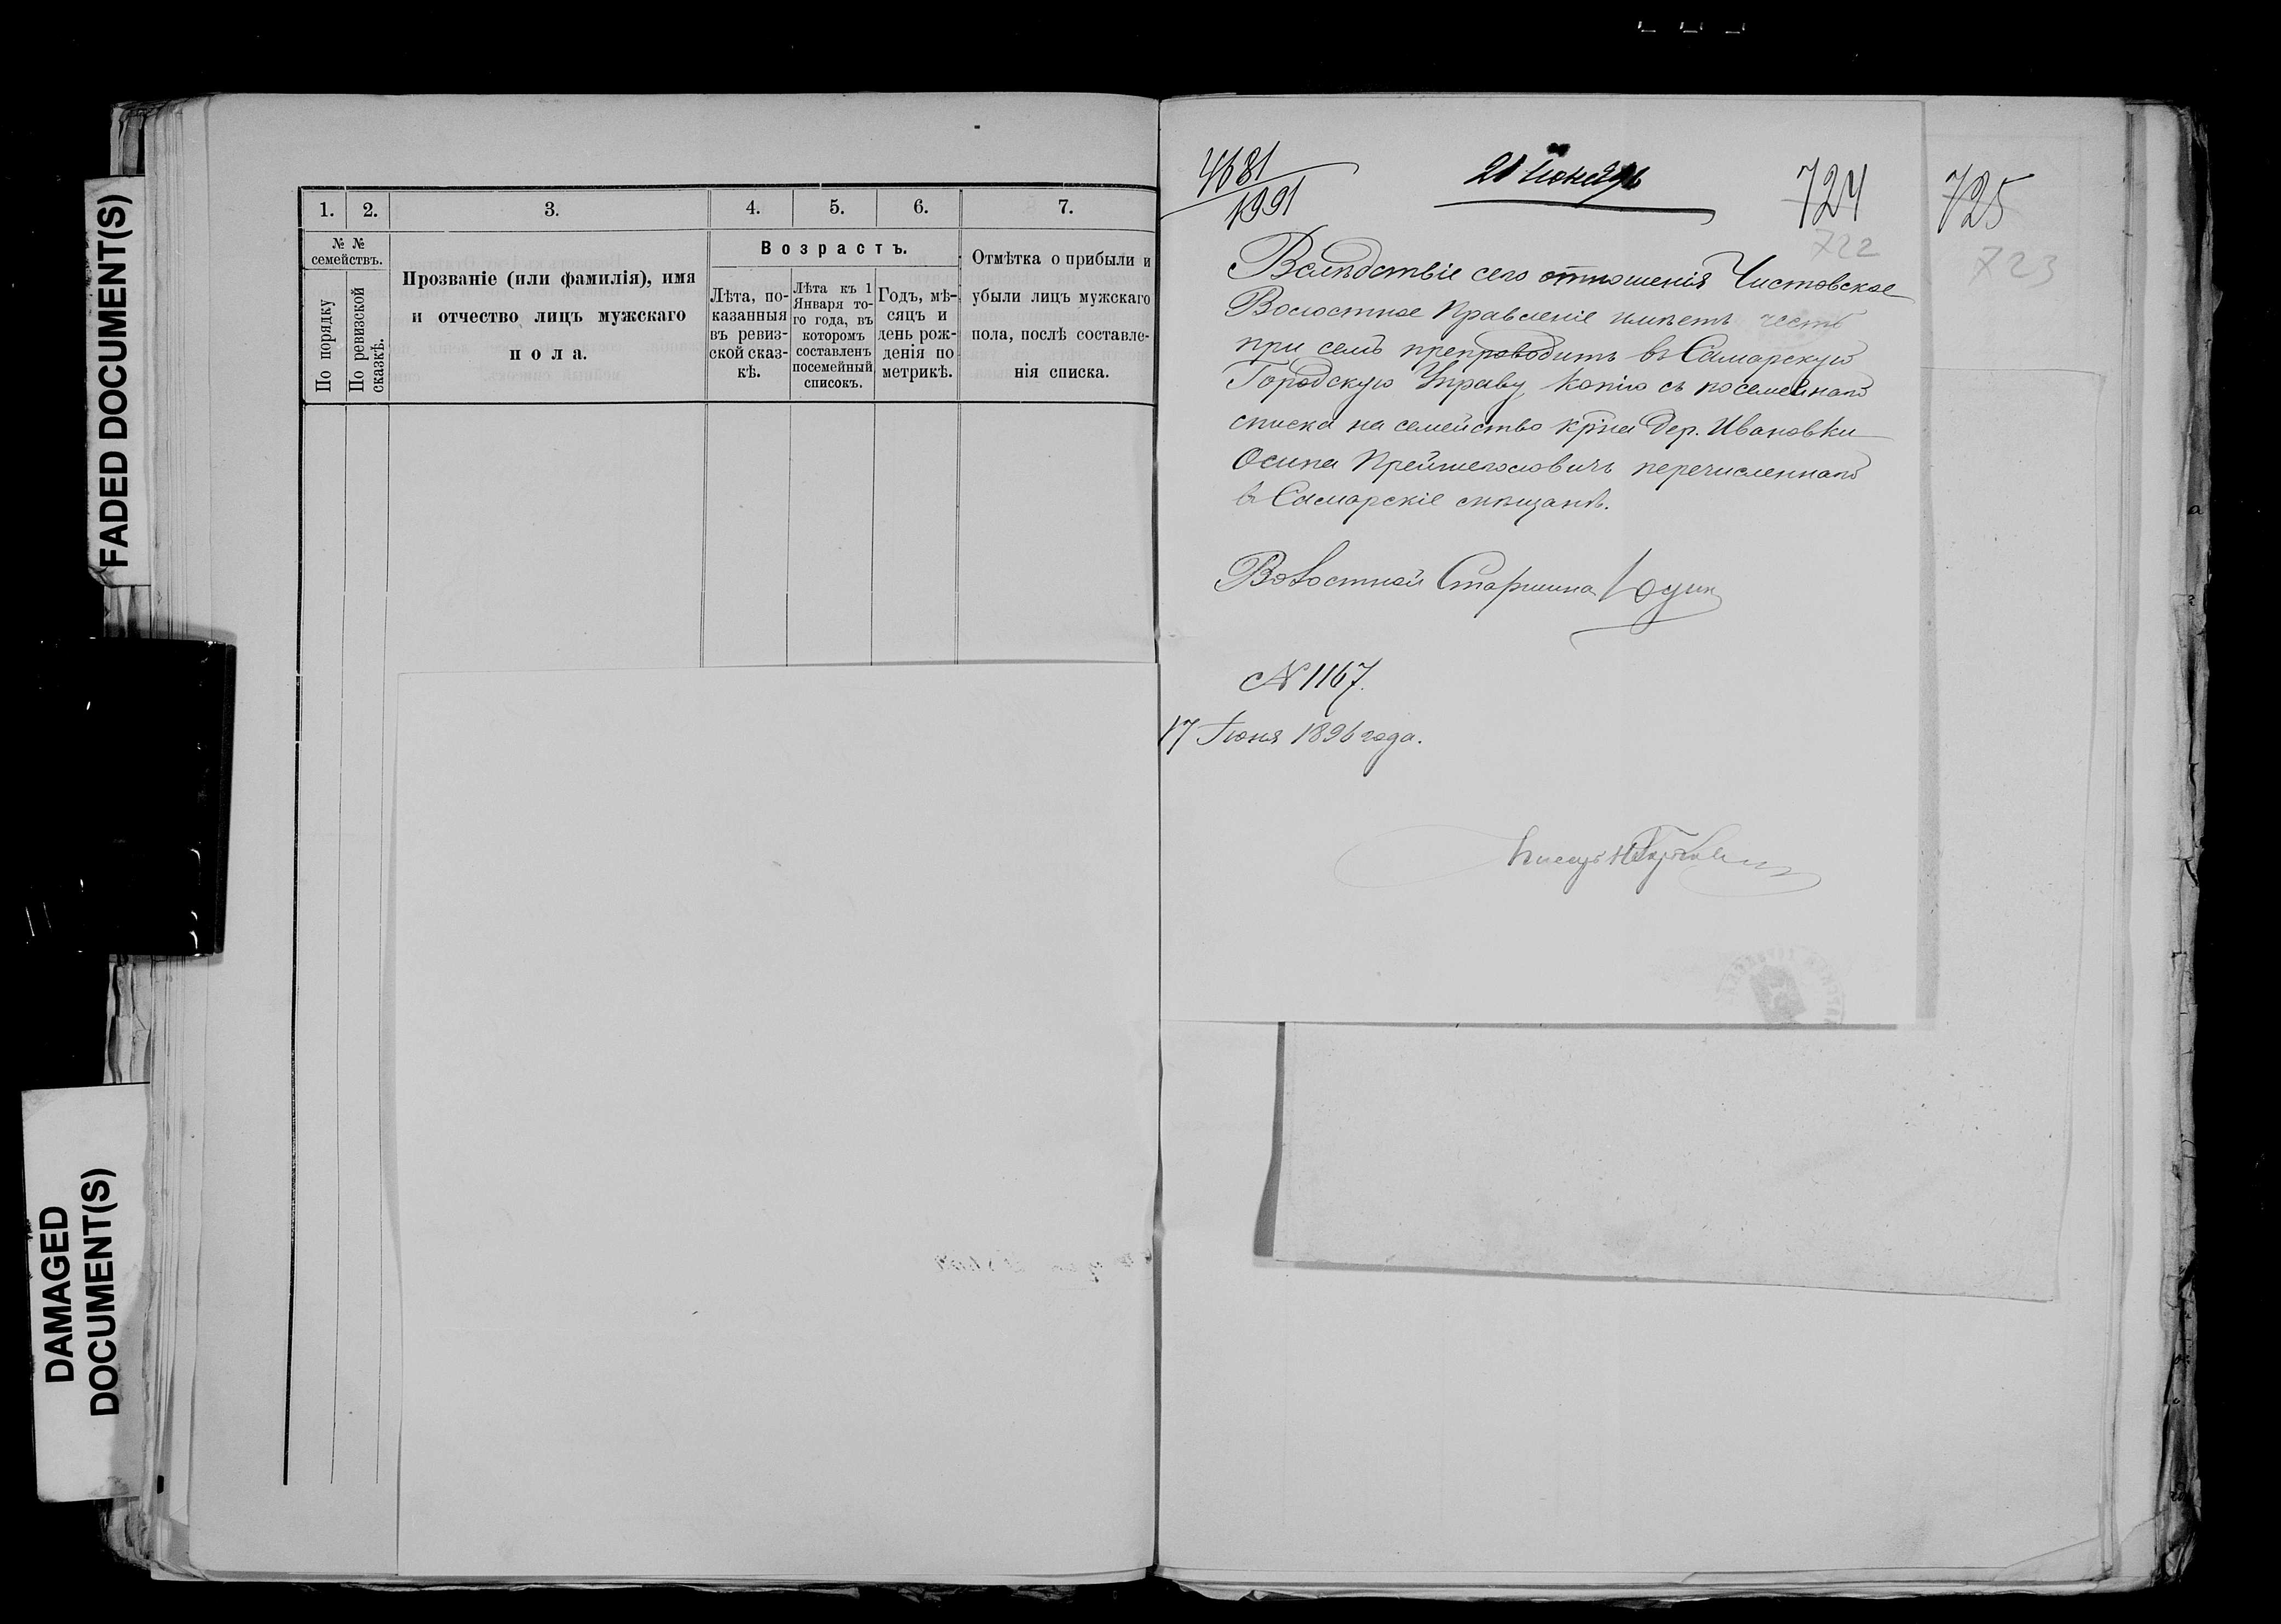 FADED DOCUMENT(S)
DAMAGED
DOCUMENT(S)
1. 2. 3. 4. 5. 6. 7.
№ №
семействъ.
По порядку
По ревизской
сказкѣ.
Прозваніе (или фамилія), имя
и отчество лицъ мужскаго
пола.
Возрастъ.
Лѣта, по-
казанныя
въ ревиз-
ской сказ-
кѣ.
Лѣта къ 1
Января то-
го года, въ
которомъ
составленъ
посемейный
списокъ.
Годъ, мѣ-
сяцъ и
день рож-
денія по
метрикѣ.
Отмѣтка о прибыли и
убыли лицъ мужскаго
пола, послѣ составле-
нія списка.
4681
1991
724
725
722
723
Вслѣдствіе сего отношенія Чистовское
Волостное Правленіе имѣетъ честь
при семъ препроводить въ Самарскую
Городскую Управу, копію съ посемейнаго
списка на семейство кр-на дер. Ивановки
Осипа перечисленнаго
въ Самарскіе мѣщане.
Волостной Старшина
№ 1167.
17 Іюня 1896 года.